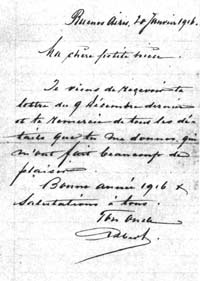 Buenos Aires, 20 Janvier 1916.
Ma chère petite nièce
Je viens de recevoir ta
lettre du 9 Décembre dernier
et te remercie de tous les dé-
tails que tu me donnes, qui
m'ont fait beaucoup de
plaisir
Bonne année 1916 &
Salutations à tous.
Ton Oncle
Albert